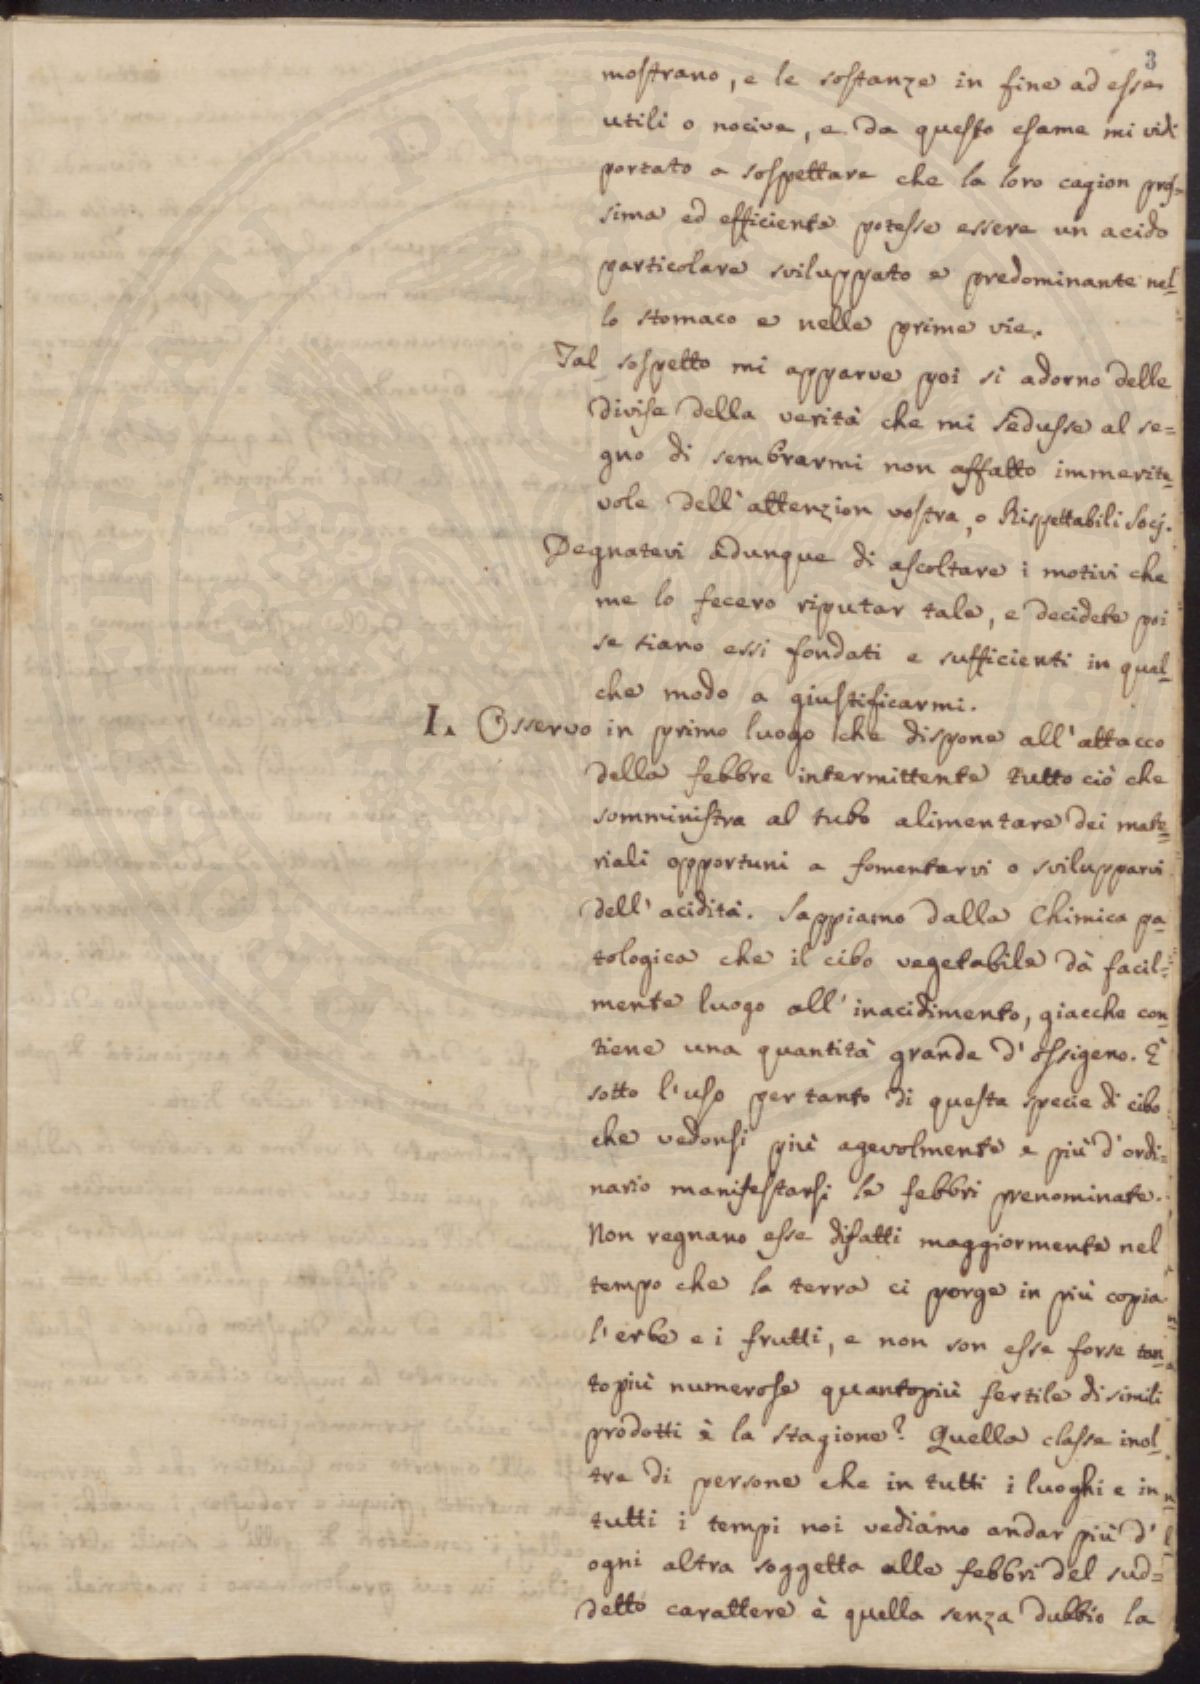 3
mostrano, e le sostanze in fine ad esse
utili o nocive, e da questo esame mi vidi
portato a sospettare che la loro cagion pros=
sima ed efficiente potesse essere un acido
particolare sviluppato e predominante nel=
lo stomaco e nelle prime vie.
Tal sospetto mi apparve poi sì adorno delle
divise della verità che mi sedusse al se=
gno di sembrarmi non affatto immerite=
vole dell'attenzion vostra, o Rispettabili Socj.
Degnatevi adunque di ascoltare i motivi che
me lo fecero riputar tale, e decidete poi
se siano essi fondati e sufficienti in qual=
che modo a giustificarmi.
I. Osservo in primo luogo che dispone all'attacco
della febbre intermittente tutto ciò che
somministra al tubo alimentare dei mate=
riali opportuni a fomentarvi o svilupparvi
dell'acidità. Sappiamo dalla Chimica pa=
tologica che il cibo vegetabile dà facil=
mente luogo all'inacidimento, giacche con=
tiene una quantità grande d'ossigeno. È
sotto l'uso per tanto di questa specie di cibo
che vedonsi più agevolmente e più d'ordi=
nario manifestarsi le febbri prenominate.
Non regnano esse difatti maggiormente nel
tempo che la terra ci porge in più copia
l'erbe e i frutti, e non son esse forse tan=
topiù numerose quantopiù fertile di simili
prodotti è la stagione? Quella classe inol=
tre di persone che in tutti i luoghi e in
tutti i tempi noi vediamo andar più d'
ogni altra soggetta alle febbri del sud=
detto carattere è quella senza dubbio la